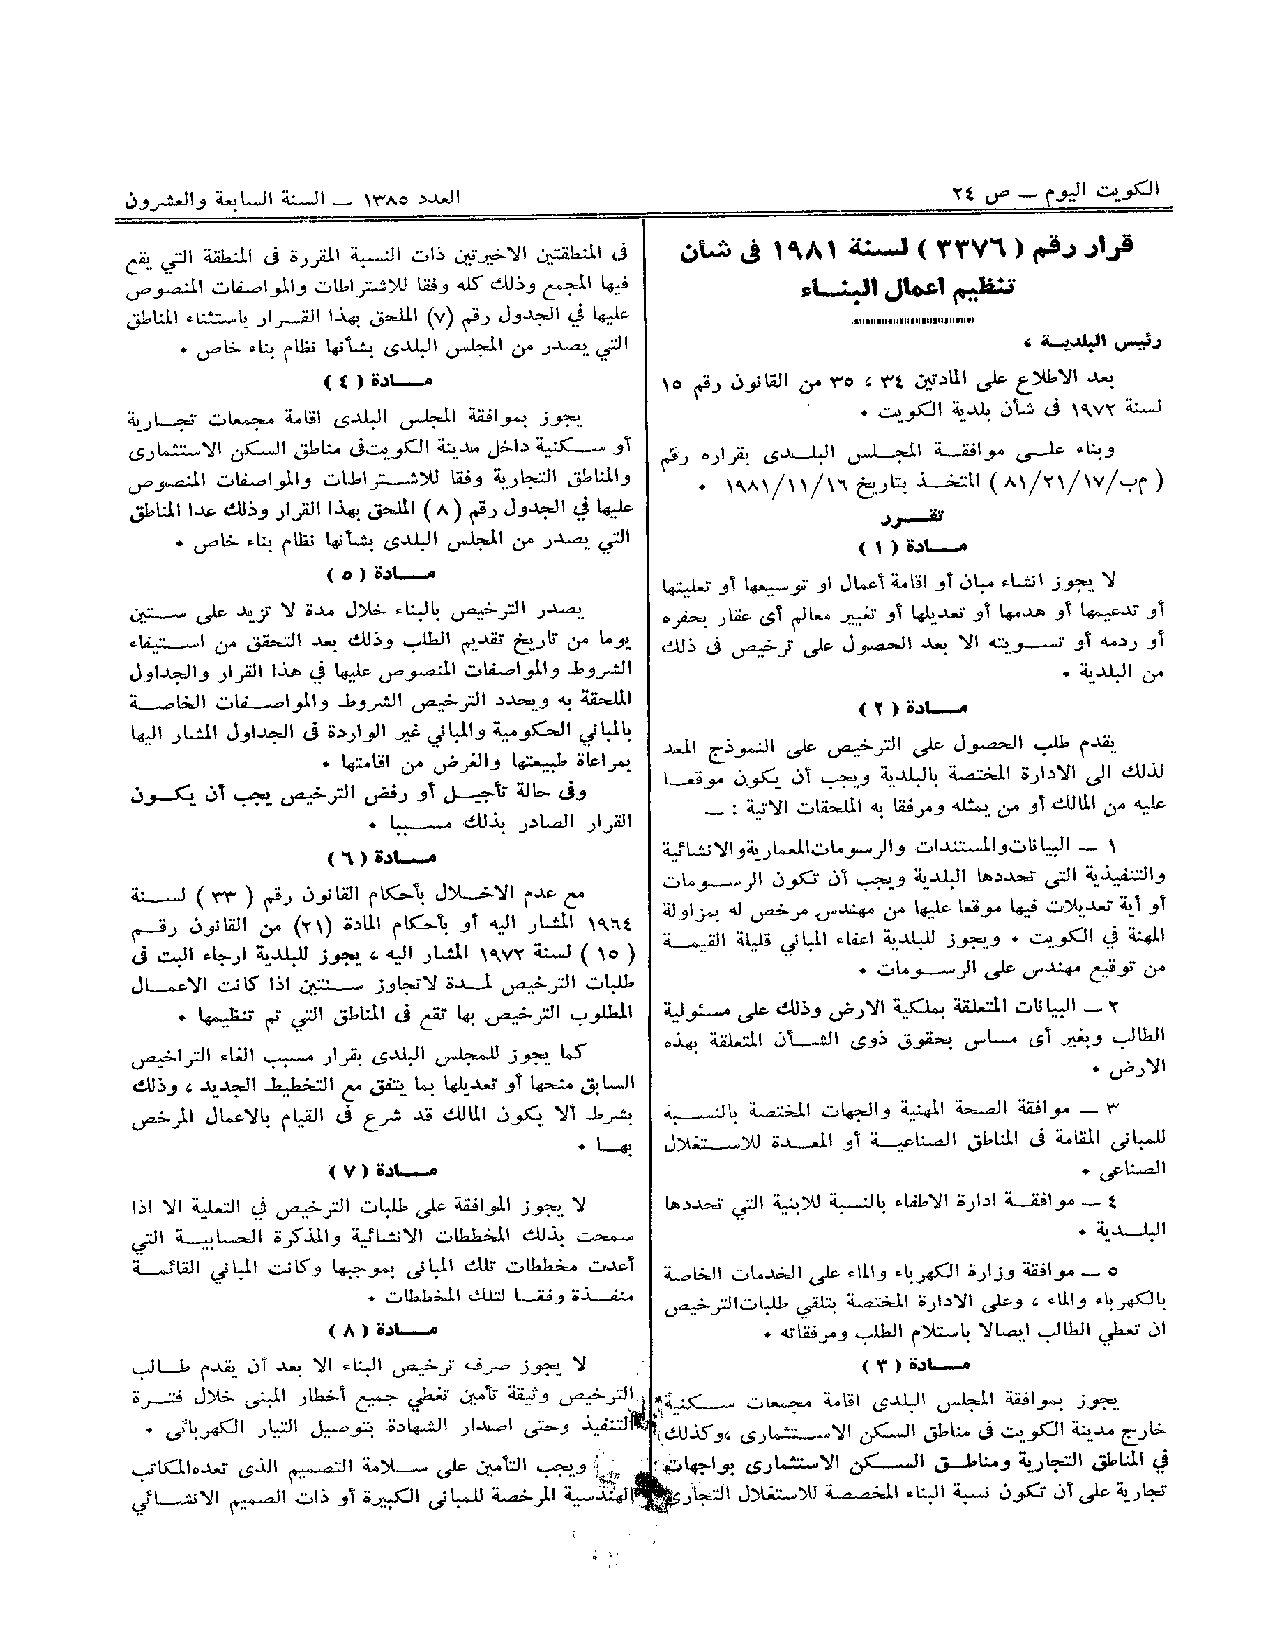 الكويت اليوم ــ ص ٢٤
العدد ١٣٨٥ ــ السنة السابعة والعشرون
قرار رقم ( ٣٣٧٦ ) لسنة ١٩٨١ فى شأن
تنظيم اعمال البنـــاء
رئيس البلديـــة ،
بعد الاطلاع على المادتين ٣٤ ، ٣٥ من القانون رقم ١٥
لسنة ١٩٧٢ فى شأن بلدية الكويت .
وبناء علـى موافقـة المجـلس البلـدى بقراره رقم
( م ب/١٧/٢١/٨١ ) المتخـذ بتاريخ ١٩٨١/١١/١٦ .
تقـــرر
مـــادة ( ١ )
لا يجوز انشاء مبان أو اقامة أعمال او توسيعها أو تعليتها
أو تدعيمها أو هدمها أو تعديلها أو تغيير معالم أى عقار بحفره
أو ردمه أو تسـويته الا بعد الحصول على ترخيص فى ذلك
من البلدية .
مـــادة ( ٢ )
يقدم طلب الحصول على الترخيص على النموذج المعد
لذلك الى الادارة المختصة بالبلدية ويجب أن يكون موقعـا
عليه من المالك أو من يمثله ومرفقا به الملحقات الاتية : ــ
١ ــ البيانات والمستندات والرسومات المعمارية والانشائية
والتنفيذية التى تحددها البلدية ويجب أن تكون الرسـومات
أو أية تعديلات فيها موقعا عليها من مهندس مرخص له بمزاولة
المهنة في الكويت . ويجوز للبلدية اعفاء المباني قليلة القيمـة
من توقيع مهندس على الرسـومات .
٢ ــ البيانات المتعلقة بملكية الارض وذلك على مسئولية
الطالب وبغير أى مساس بحقوق ذوى الشـأن المتعلقة بهذه
الارض .
٣ ــ موافقة الصحة المهنية والجهات المختصة بالنسـبة
للمبانى المقامة فى المناطق الصناعيـة أو المعـدة للاسـتغلال
الصناعى .
٤ ــ موافقـة ادارة الاطفاء بالنسبة للابنية التي تحددها
البلـدية .
٥ ــ موافقة وزارة الكهرباء والماء على الخدمات الخاصة
بالكهرباء والماء ، وعلى الادارة المختصة بتلقي طلبات الترخيص
ان تعطي الطالب ايصالا باستلام الطلب ومرفقاته .
مـــادة ( ٣ )
يجوز بموافقة المجلس البلدى اقامة مجمعات سـكنية
خارج مدينة الكويت فى مناطق السكن الاسـتثمارى ،وكذلك
في المناطق التجارية ومناطـق السـكن الاستثمارى بواجهات
تجارية على أن تكون نسبة البناء المخصصة للاستغلال التجارى
فى المنطقتين الاخيرتين ذات النسبة المقررة فى المنطقة التي يقع
فيها المجمع وذلك كله وفقا للاشتراطات والمواصفات المنصوص
عليها في الجدول رقم (٧) الملحق بهذا القـرار باستثناء المناطق
التي يصدر من المجلس البلدى بشأنها نظام بناء خاص .
مـــادة ( ٤ )
يجوز بموافقة المجلس البلدى اقامة مجمعات تجـارية
أو سـكنية داخل مدينة الكويت فى مناطق السكن الاستثمارى
والمناطق التجارية وفقا للاشـتراطات والمواصفات المنصوص
عليها في الجدول رقم ( ٨ ) الملحق بهذا القرار وذلك عدا المناطق
التي يصدر من المجلس البلدى بشأنها نظام بناء خاص .
مـــادة ( ٥ )
يصدر الترخيص بالبناء خلال مدة لا تزيد على سـتين
يوما من تاريخ تقديم الطلب وذلك بعد التحقق من اسـتيفاء
الشروط والمواصفات المنصوص عليها في هذا القرار والجداول
الملحقة به ويحدد الترخيص الشروط والمواصـفات الخاصـة
بالمباني الحكومية والمباني غير الواردة فى الجداول المشار اليها
بمراعاة طبيعتها والغرض من اقامتها .
وفى حالة تأجيـل أو رفض الترخيص يجب أن يكـون
القرار الصادر بذلك مسـببا .
مـــادة ( ٦ )
مع عدم الاخـلال بأحكام القانون رقم ( ٣٣ ) لسـنة
١٩٦٤ المشار اليه أو بأحكام المادة (٢١) من القانون رقـم
( ١٥ ) لسنة ١٩٧٢ المشار اليه ، يجوز للبلدية ارجاء البت فى
طلبات الترخيص لمـدة لاتجاوز سـنتين اذا كانت الاعمـال
المطلوب الترخيص بها تقع فى المناطق التي تم تنظيمها .
كما يجوز للمجلس البلدى بقرار مسبب الغاء التراخيص
السابق منحها أو تعديلها بما يتفق مع التخطيط الجديد ، وذلك
بشرط ألا يكون المالك قد شرع فى القيام بالاعمال المرخص
بهـا .
مـــادة ( ٧ )
لا يجوز الموافقة على طلبات الترخيص في التعلية الا اذا
سمحت بذلك المخططات الانشائية والمذكرة الحسابيـة التي
أعدت مخططات تلك المبانى بموجبها وكانت المباني القائمـة
منفـذة وفقـا لتلك المخططات .
مـــادة ( ٨ )
لا يجوز صرف ترخيص البناء الا بعد أن يقدم طـالب
الترخيص وثيقة تأمين تغطي جميع أخطار المبنى خلال فتـرة
التنفيذ وحتى اصدار الشهادة بتوصيل التيار الكهربائى .
ويجب التأمين على سـلامة التصميم الذى تعده المكاتب
الهندسية المرخصة للمبانى الكبيرة أو ذات الصميم الانشـائي